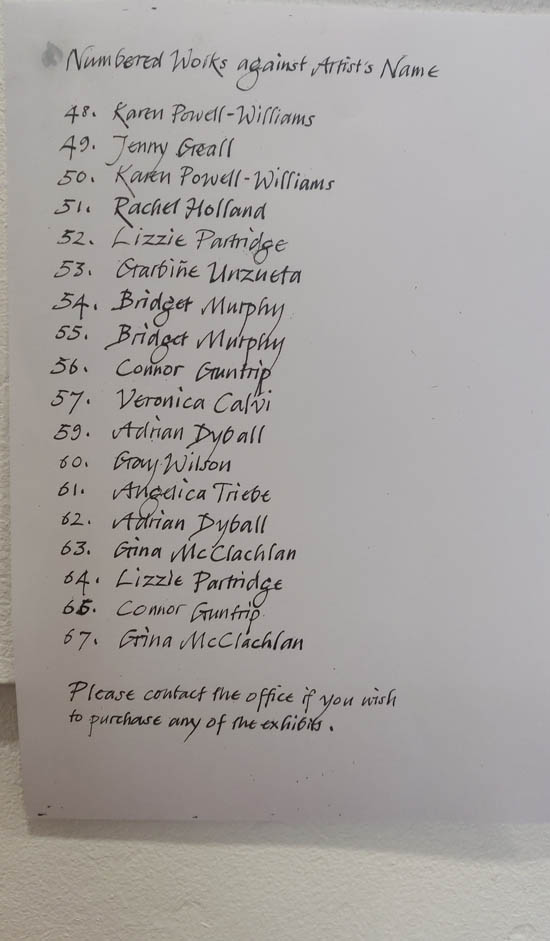 Numbered Works against Artist's Name
48. Karen Powell-Williams
49. Jenny Greall
50. Karen Powell-Williams
51. Rachel Holland
52. Lizzie Partridge
53. Garbiñe Unzueta
54. Bridget Murphy
55. Bridget Murphy
56. Connor Guntrip
57. Veronica Calvi
59. Adrian Dyball
60. Gray Wilson
61. Angelica Triebe
62. Adrian Dyball
63. Gina McClachlan
64. Lizzie Partridge
65. Connor Guntrip
67. Gina McClachlan
Please contact the office if you wish
to purchase any of the exhibits.